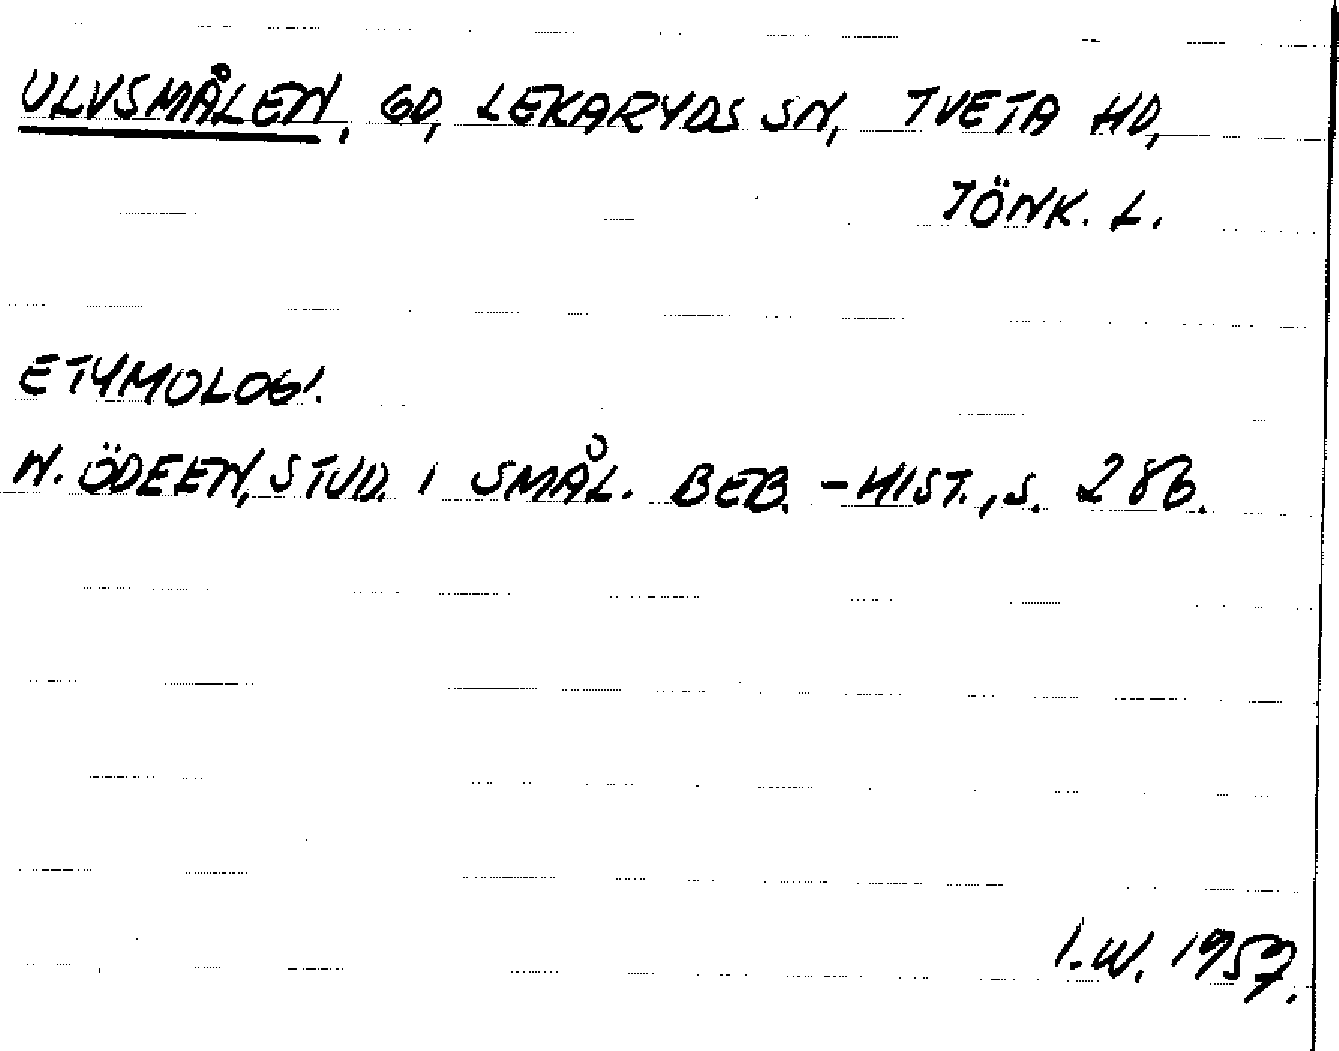 ULVSMÅLEN, GD, LEKARYDS SN, TVETA HD,
JÖNK. L.
ETYMOLOGI.
N. ÖDEEN, STUD. I SMÅL. BEB. - HIST., S. 286.
I.W. 1957.